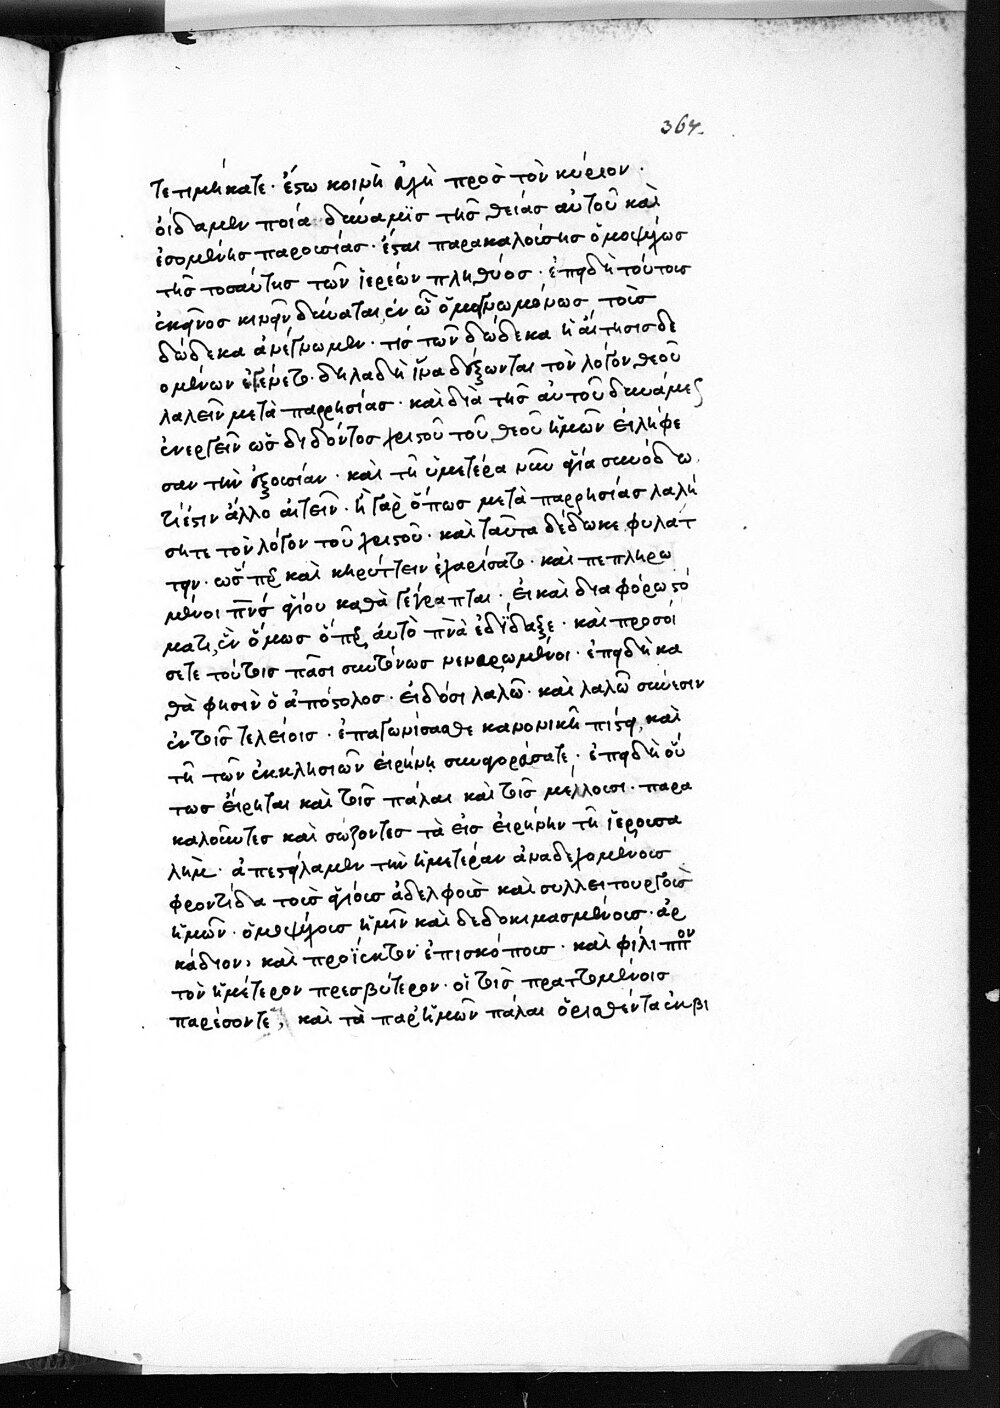 364.
τετιμήκατε· ἔστω κοινὴ εὐχὴ πρὸς τὸν κύριον·
οἴδαμεν ποία δύναμϊς τῆς θείας αὐτοῦ καὶ
ἐσομένης παρουσίας· ἔσται παρακαλούσης ὁμοψύχως
τῆς τοσαύτης τῶν ἱερέων πληθύος· ἐπειδὴ τούτοις
ἐκεῖνος κινεῖν δύναται, ἐν ᾧ ὁμογνωμόνως τοῖς
δώδεκα ἀνέγνωμεν· τίς τῶν δώδεκα ἡ αἴτησις δε
ομένων ἐγένετο· δηλαδὴ ἵνα δέξωνται τὸν λόγον θεοῦ
λαλεῖν μετὰ παρρησίας· καὶ διὰ τῆς αὐτοῦ δυνάμεως
ἐνεργεῖν ὡς διδόντος χριστοῦ τοῦ θεοῦ ἡμῶν εἰλήφε
σαν τὴν ἐξουσίαν· καὶ τῇ ὑμετέρα νῦν ἁγία συνόδω
τί ἐστιν ἄλλο αἰτεῖν· ἢ γὰρ ὅπως μετὰ παρρησίας λαλή
σητε τὸν λόγον τοῦ χριστοῦ· καὶ ταῦτα δέδωκε φυλάτ
τειν· ὥσπερ καὶ κηρύττειν ἐχαρίσατο· καὶ πεπληρω
μένοι πνς ἁγίου καθὰ γέγραπται· εἰ καὶ διαφόρω στό
ματι, ἓν ὅμως ὅπερ αὐτὸ πνα ἐδίδαξε· καὶ προσοί
σετε τούτοις πᾶσι συντόνως
θά φησιν ὁ ἀπόστολος· εἰδόσι λαλῶ· καὶ λαλῶ σύνεσιν
ἐν τοῖς τελείοις· ἐπαγωνίσασθε κανονικῇ πίστει, καὶ
τῇ τῶν ἐκκλησιῶν εἰρήνῃ συναγοράσατε· ἐπειδὴ οὕ
τως εἴρηται καὶ τοῖς πάλαι καὶ τοῖς μέλλουσι· παρα
καλοῦντες καὶ σώζοντες τὰ εἰς εἰρήνην τῇ ἱερουσα
λήμ· ἀπεστείλαμεν τὴν ἡμετέραν ἀναδεχομένοις
φροντίδα τοῖς ἁγίοις ἀδελφοῖς καὶ συλλειτουργοῖς
ἡμῶν· ὁμοψύχοις ἡμῖν καὶ δεδοκιμασμένοις· ἀρ
κάδιον, καὶ προϊέκτον ἐπισκόποις· καὶ φίλιππον
τὸν ἡμέτερον πρεσβύτερον· οἳ τοῖς πραττομένοις
παρέσονται, καὶ τὰ παρ' ἡμῶν πάλαι ὁρισθέντα ἐκβι